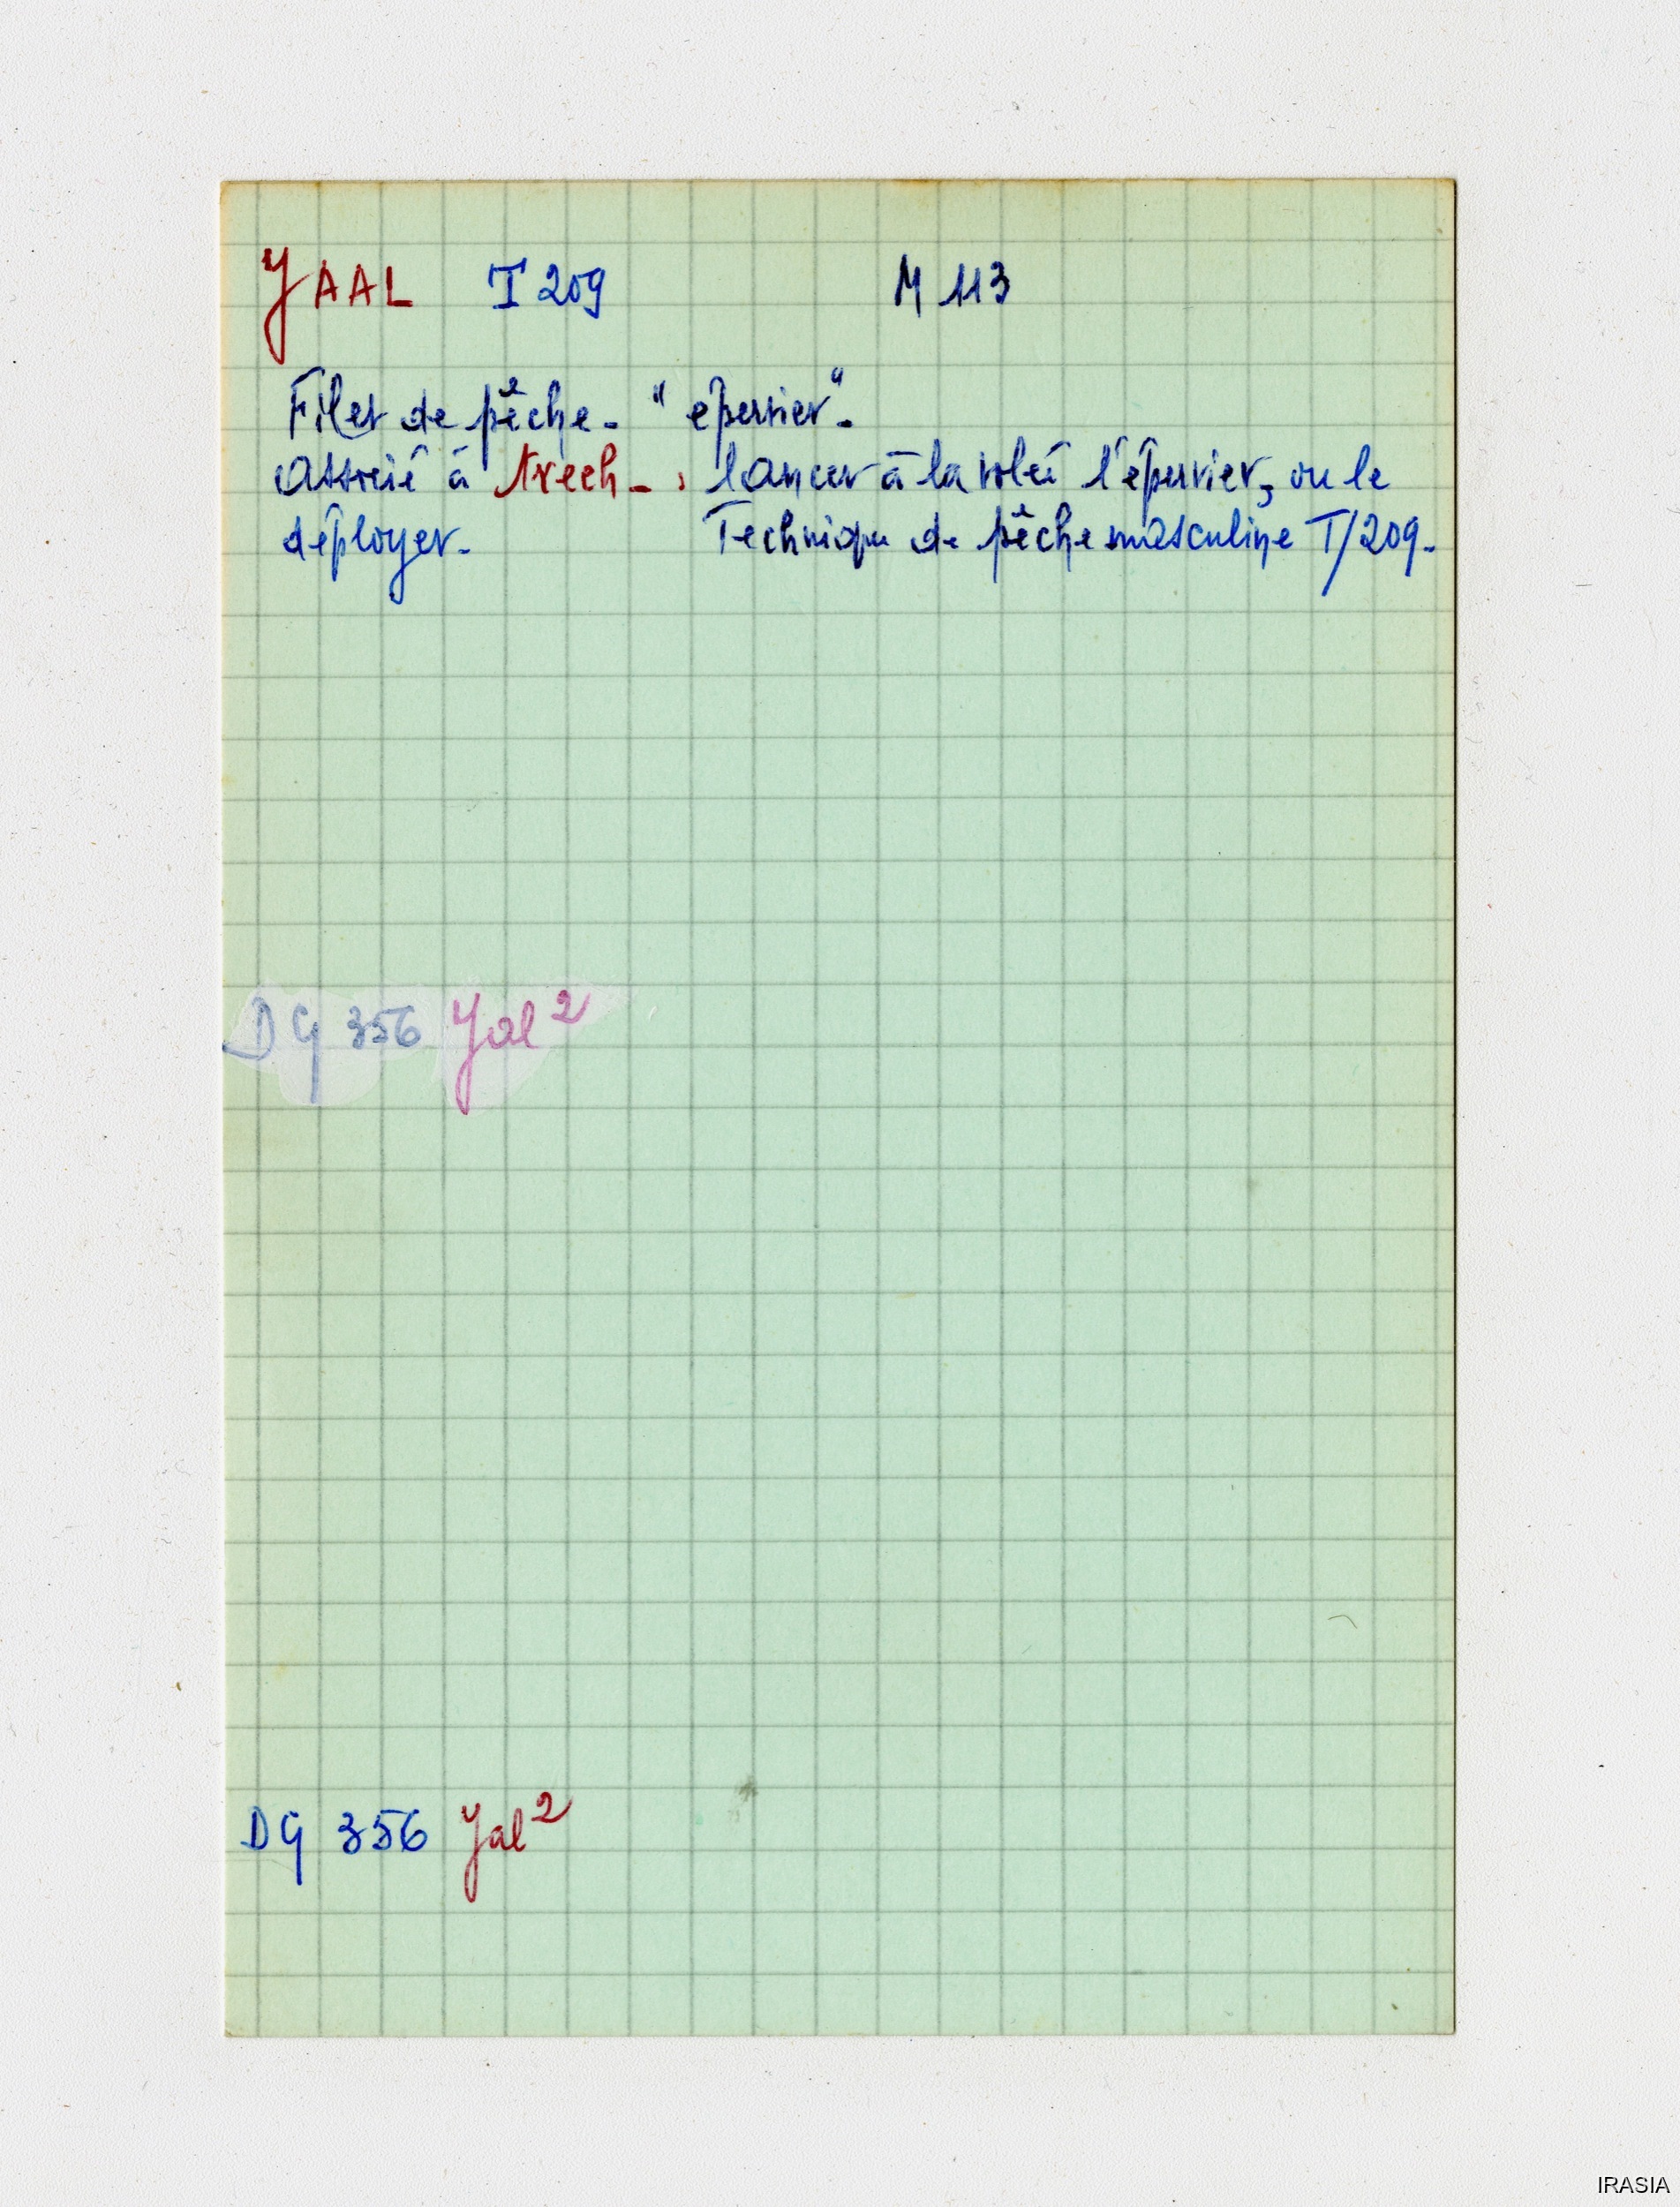 JAAL T 209 M 113
Filet de pêche - "épervier" -
Associé à trech - : lancer à la volée l'épervier, ou le
déployer - Technique de pêche masculine T/209 -
DG 356 Jal 2
DG 356 Jal 2
IRASIA